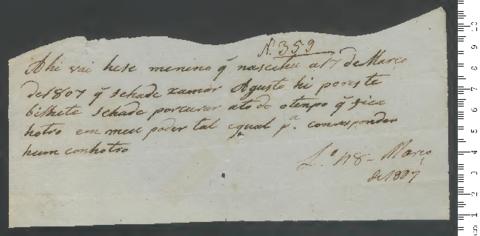 N. 359
Ahi vai hese menino q nasceu a 17 de Março
de 1807 q sehade xamar Agusto hi por este
bilhete sehade porcurar atodo otenpo q fica
hotro em meu poder tal equal pª. conresponder
hum conhotro
Março
de 1807